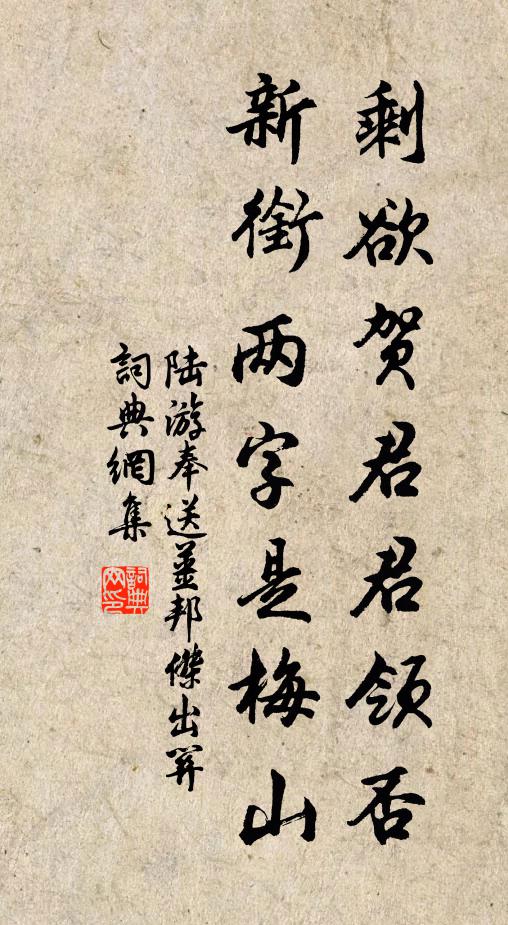 剩欲贺君君领否
新銜两字是梅山
陆游奉送薑邦傑出関
詞典網集
詞典
网印